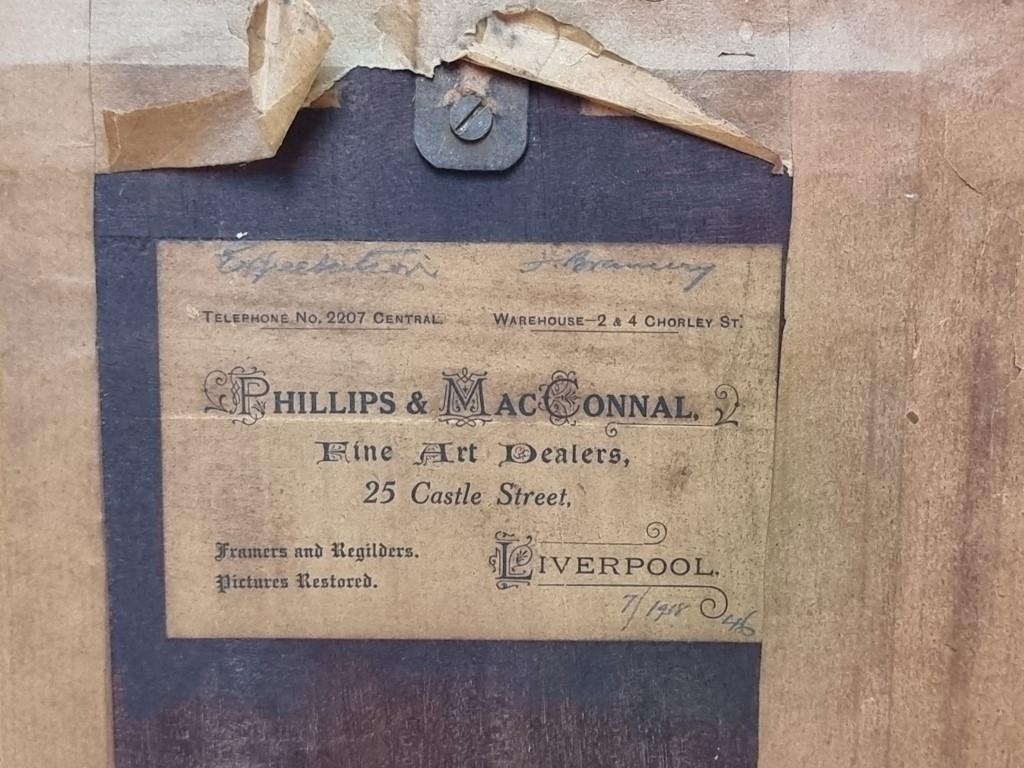 Expectation J. Bramery
TELEPHONE NO. 2207 CENTRAL. WAREHOUSE—2 & 4 CHORLEY ST.
PHILLIPS & MACCONNAL.
Fine Art Dealers,
25 Castle Street,
Framers and Regilders.
Pictures Restored.
LIVERPOOL.
7/1918 46